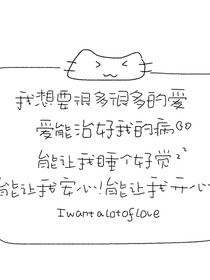 我想要很多很多的爱
爱能治好我的病
能让我睡个好觉zz
能让我安心!能让我开心
I want a lot of love